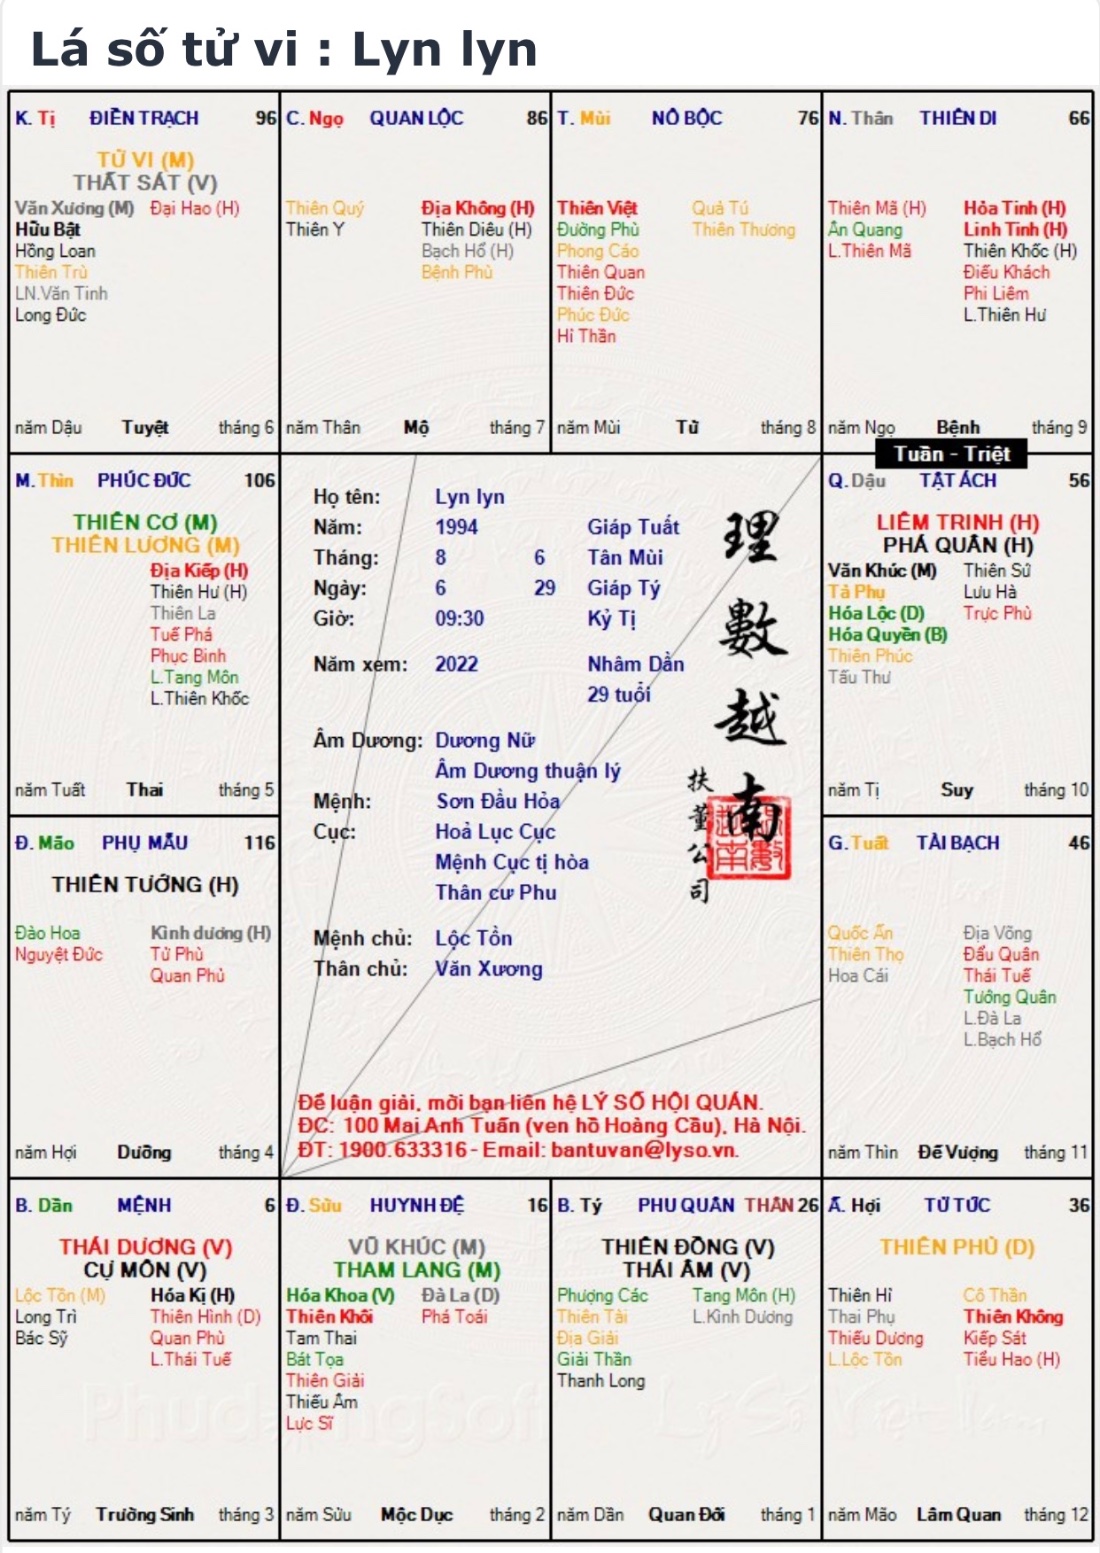 Lá số tử vi : Lyn lyn
K. Tị ĐIỀN TRẠCH 96
TỬ VI (M)
THẤT SÁT (V)
Văn Xương (M) Đại Hao (H)
Hữu Bật
Hồng Loan
Thiên Trù
LN.Văn Tinh
Long Đức
năm Dậu Tuyệt tháng 6
C. Ngọ QUAN LỘC 86
Thiên Quý Địa Không (H)
Thiên Y Thiên Diêu (H)
Bạch Hổ (H)
Bệnh Phù
năm Thân Mộ tháng 7
T. Mùi NÔ BỘC 76
Thiên Việt Quả Tú
Đường Phù Thiên Thương
Phong Cáo
Thiên Quan
Thiên Đức
Phúc Đức
Hỉ Thần
năm Mùi Tử tháng 8
N. Thân THIÊN DI 66
Thiên Mã (H) Hỏa Tinh (H)
Ân Quang Linh Tinh (H)
L.Thiên Mã Thiên Khốc (H)
Điếu Khách
Phi Liêm
L.Thiên Hư
năm Ngọ Bệnh tháng 9
Tuần - Triệt
M. Thìn PHÚC ĐỨC 106
THIÊN CƠ (M)
THIÊN LƯƠNG (M)
Địa Kiếp (H)
Thiên Hư (H)
Thiên La
Tuế Phá
Phục Binh
L.Tang Môn
L.Thiên Khốc
năm Tuất Thai tháng 5
Họ tên: Lyn lyn
Năm: 1994 Giáp Tuất
Tháng: 8 6 Tân Mùi
Ngày: 6 29 Giáp Tý
Giờ: 09:30 Kỷ Tị
Năm xem: 2022 Nhâm Dần
29 tuổi
Âm Dương: Dương Nữ
Âm Dương thuận lý
Mệnh: Sơn Đầu Hỏa
Cục: Hoả Lục Cục
Mệnh Cục tị hòa
Thân cư Phu
Mệnh chủ: Lộc Tồn
Thân chủ: Văn Xương
理數越南
扶董公司
Để luận giải, mời bạn liên hệ LÝ SỐ HỘI QUÁN.
ĐC: 100 Mai Anh Tuấn (ven hồ Hoàng Cầu), Hà Nội.
ĐT: 1900.633316 - Email: bantuvan@lyso.vn.
Q. Dậu TẬT ÁCH 56
LIÊM TRINH (H)
PHÁ QUÂN (H)
Văn Khúc (M) Thiên Sứ
Tả Phụ Lưu Hà
Hóa Lộc (D) Trực Phù
Hóa Quyền (B)
Thiên Phúc
Tấu Thư
năm Tị Suy tháng 10
Đ. Mão PHỤ MẪU 116
THIÊN TƯỚNG (H)
Đào Hoa Kình dương (H)
Nguyệt Đức Tử Phù
Quan Phủ
năm Hợi Dưỡng tháng 4
G. Tuất TÀI BẠCH 46
Quốc Ấn Địa Võng
Thiên Thọ Đẩu Quân
Hoa Cái Thái Tuế
Tướng Quân
L.Đà La
L.Bạch Hổ
năm Thìn Đế Vượng tháng 11
B. Dần MỆNH 6
THÁI DƯƠNG (V)
CỰ MÔN (V)
Lộc Tồn (M) Hóa Kị (H)
Long Trì Thiên Hình (D)
Bác Sỹ Quan Phù
L.Thái Tuế
năm Tý Trường Sinh tháng 3
Đ. Sửu HUYNH ĐỆ 16
VŨ KHÚC (M)
THAM LANG (M)
Hóa Khoa (V) Đà La (D)
Thiên Khôi Phá Toái
Tam Thai
Bát Tọa
Thiên Giải
Thiếu Âm
Lực Sĩ
năm Sửu Mộc Dục tháng 2
B. Tý PHU QUÂN THÂN 26
THIÊN ĐỒNG (V)
THÁI ÂM (V)
Phượng Các Tang Môn (H)
Thiên Tài L.Kình Dương
Địa Giải
Giải Thần
Thanh Long
năm Dần Quan Đới tháng 1
Ấ. Hợi TỬ TỨC 36
THIÊN PHỦ (D)
Thiên Hỉ Cô Thần
Thai Phụ Thiên Không
Thiếu Dương Kiếp Sát
L.Lộc Tồn Tiểu Hao (H)
năm Mão Lâm Quan tháng 12